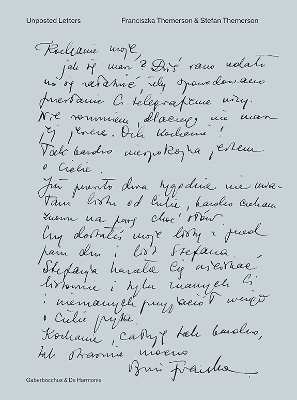 Unposted Letters
Franciszka Themerson & Stefan Themerson
Kochanie moje,
jak się masz? Dziś rano udało
mi się załatwić, żeby spowodowano
przesłanie Ci telegraficzne wizy.
Nie rozumiem, dlaczego nie masz
jej jeszcze. Och kochanie!
Tak bardzo niespokojna jestem
o Ciebie.
Już prawie dwa tygodnie nie mia-
łam listu od Ciebie, bardzo czekam
znowu na parę choć słów.
Czy dostałeś moje listy z przed
paru dni i list Stefana
Stefania kazała Cię uściskać,
i tylu znanych Ci
i nieznanych przyjaciół wciąż
o Ciebie pyta.
Kochanie, całuję tak bardzo,
tak strasznie mocno
Franka.
Gaberbocchus & De Harmonie